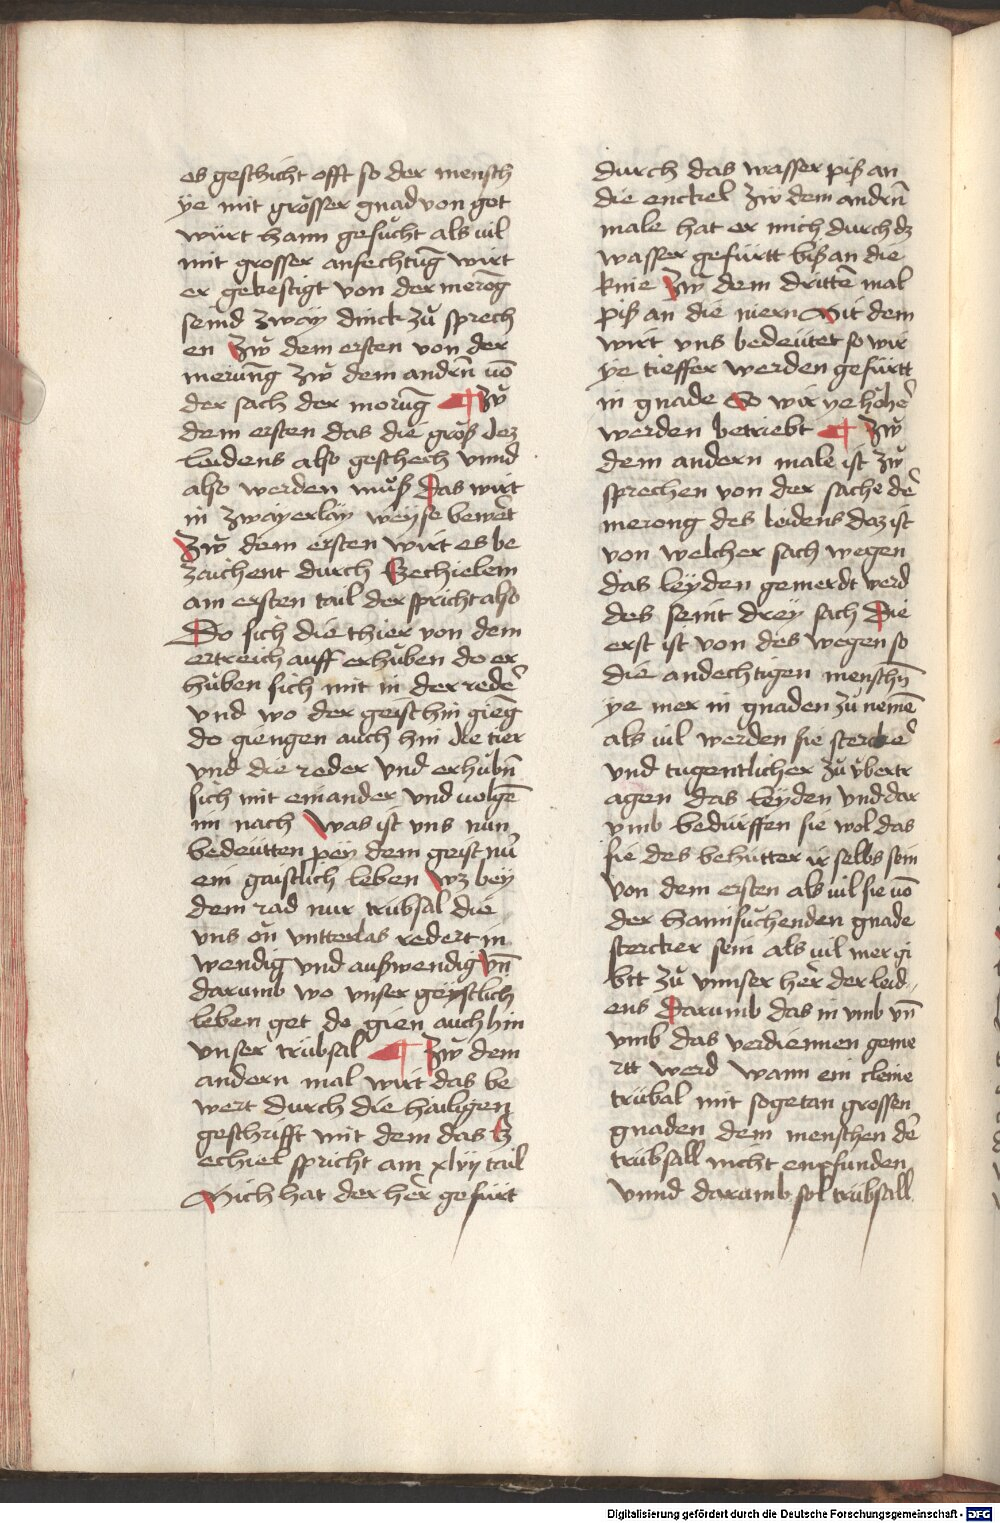 es geschicht offt so der mensch
ye mit grösser gnad von got
würt haim gesücht als uil
mit grosser anfechtūg wirt
er gekestigt von der merog̃
seind zwäy dinck zů sprech
en Zw̆ dem ersten von der
merūng zw̆ dem andrñ uō
der sach der morūg ¶ Zů
dem ersten das die größ dez
leidens also geschech vnnd
also werden můß Das wirt
in zwayerläy weÿse bewert
Zw̆ dem ersten wirt es be
zaichent durch Ezechielem
am ersten tail der spricht also
Do sich die thier von dem
ertreich auff erhůben do er
hůben sich mit in der redē
vnd wo der geist hin gieng
do giengen auch hin die tier
vnd die reder vnd erhůbñ
sich mit einander vnd uolgē
im nach Was ist vns nun
bedeütten peÿ dem geist nůr
ein gaistlich leben Wz beÿ
dem rad nur trübsal die
vns on̄ vntterlas redert in
wendig vnd außwendig Vn̄
darumb wo vnser geÿstlich
leben get do gien auch hin
vnser trübsal ¶ Zw̆ dem
andern mal wirt das be
wert durch die hailigen
geschrifft mit dem das Ez
echiel spricht am xlvij tail
Mich hat der her̄ gefürt
durch das wasser piß an
die enckel Zw̆ dem andrñ
male hat er mich durch dz
wasser gefürtt biß an die
knie Zw̆ dem drittē mal
piß an die niern Mit dem
wirt vns bedeütet so wir
ye tieffer werden gefürtt
in gnade So wir ye höhē
werden betriebt ¶ Zw̆
dem andern male ist zw̆
sprechen von der sache dē
merong des leidens daz ist
von welcher sach wegen
das leÿden gemerdt werd
des seint dreÿ sach Die
erst ist von des wegen so
die andechtigen menschñ
ye mer in gnaden zů nemē
als uil werden sie sterckē
vnd tugentlicher zů v̈bertr
agen das leÿden vnd dar
vmb bedürffen sie wol das
sie des behütter ir selbs sein
Von dem ersten als uil sie uō
der haimsůchenden gnade
stercker sein als uil mer gi
btt zů vnnser her̄ der leid
ens Darumb das in vmb vn̄
vmb das verdiennen geme
rtt werd wann ein cleine
trübal mit sogetan grossen
gnaden dem menschen dē
trübsall nicht enpfunden
vnnd darumb sol trübsall
Digitalisierung gefördert durch die Deutsche Forschungsgemeinschaft - DFG